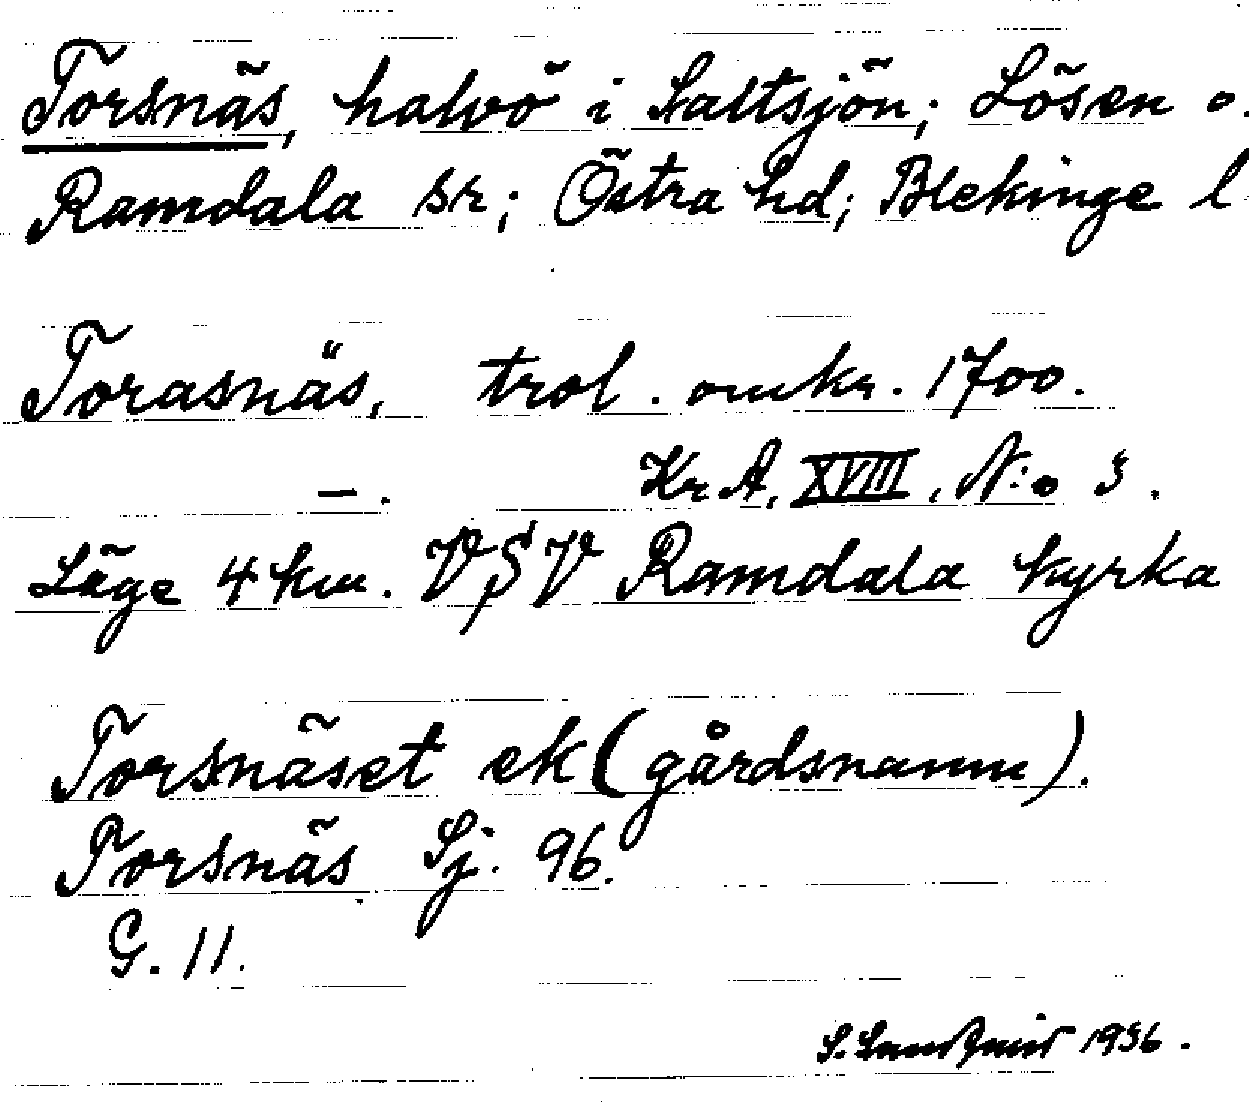 Torsnäs, halvö i Saltsjön; Lösen o.
Ramdala sr; Östra hd; Blekinge l
Torasnäs, trol. omkr. 1700.
—. Kr A, XVIII, N:o 3.
Läge 4 km. VSV Ramdala kyrka
Torsnäset ek (gårdsnamn).
Torsnäs Sj. 96.
G. 11.
S. 1936.